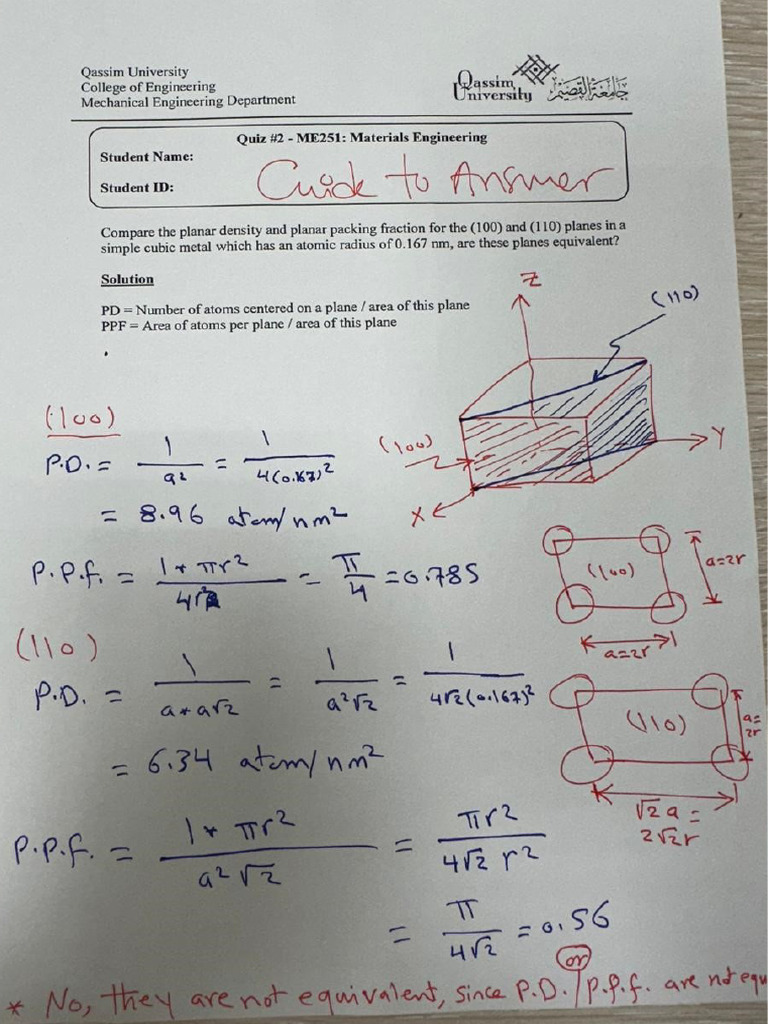 Qassim University
College of Engineering
Mechanical Engineering Department
Qassim University جامعة القصيم
Quiz #2 - ME251: Materials Engineering
Student Name:
Student ID:
Guide to Answer
Compare the planar density and planar packing fraction for the (100) and (110) planes in a
simple cubic metal which has an atomic radius of 0.167 nm, are these planes equivalent?
Solution
PD = Number of atoms centered on a plane / area of this plane
PPF = Area of atoms per plane / area of this plane
Z
(110)
(100)
Y
X
(100)
P.D. = 1 / a² = 1 / 4(0.167)²
= 8.96 atom/nm²
P.P.f. = 1 * πr² / 4r² = π / 4 = 0.785
(100)
a=2r
a=2r
(110)
P.D. = 1 / a*a√2 = 1 / a²√2 = 1 / 4√2(0.167)²
= 6.34 atom/nm²
(110)
a=
2r
√2 a =
2√2r
P.P.f. = 1 * πr² / a²√2 = πr² / 4√2 r²
= π / 4√2 = 0.56
* No, they are not equivalent, since P.D. / P.P.f. are not equ
or